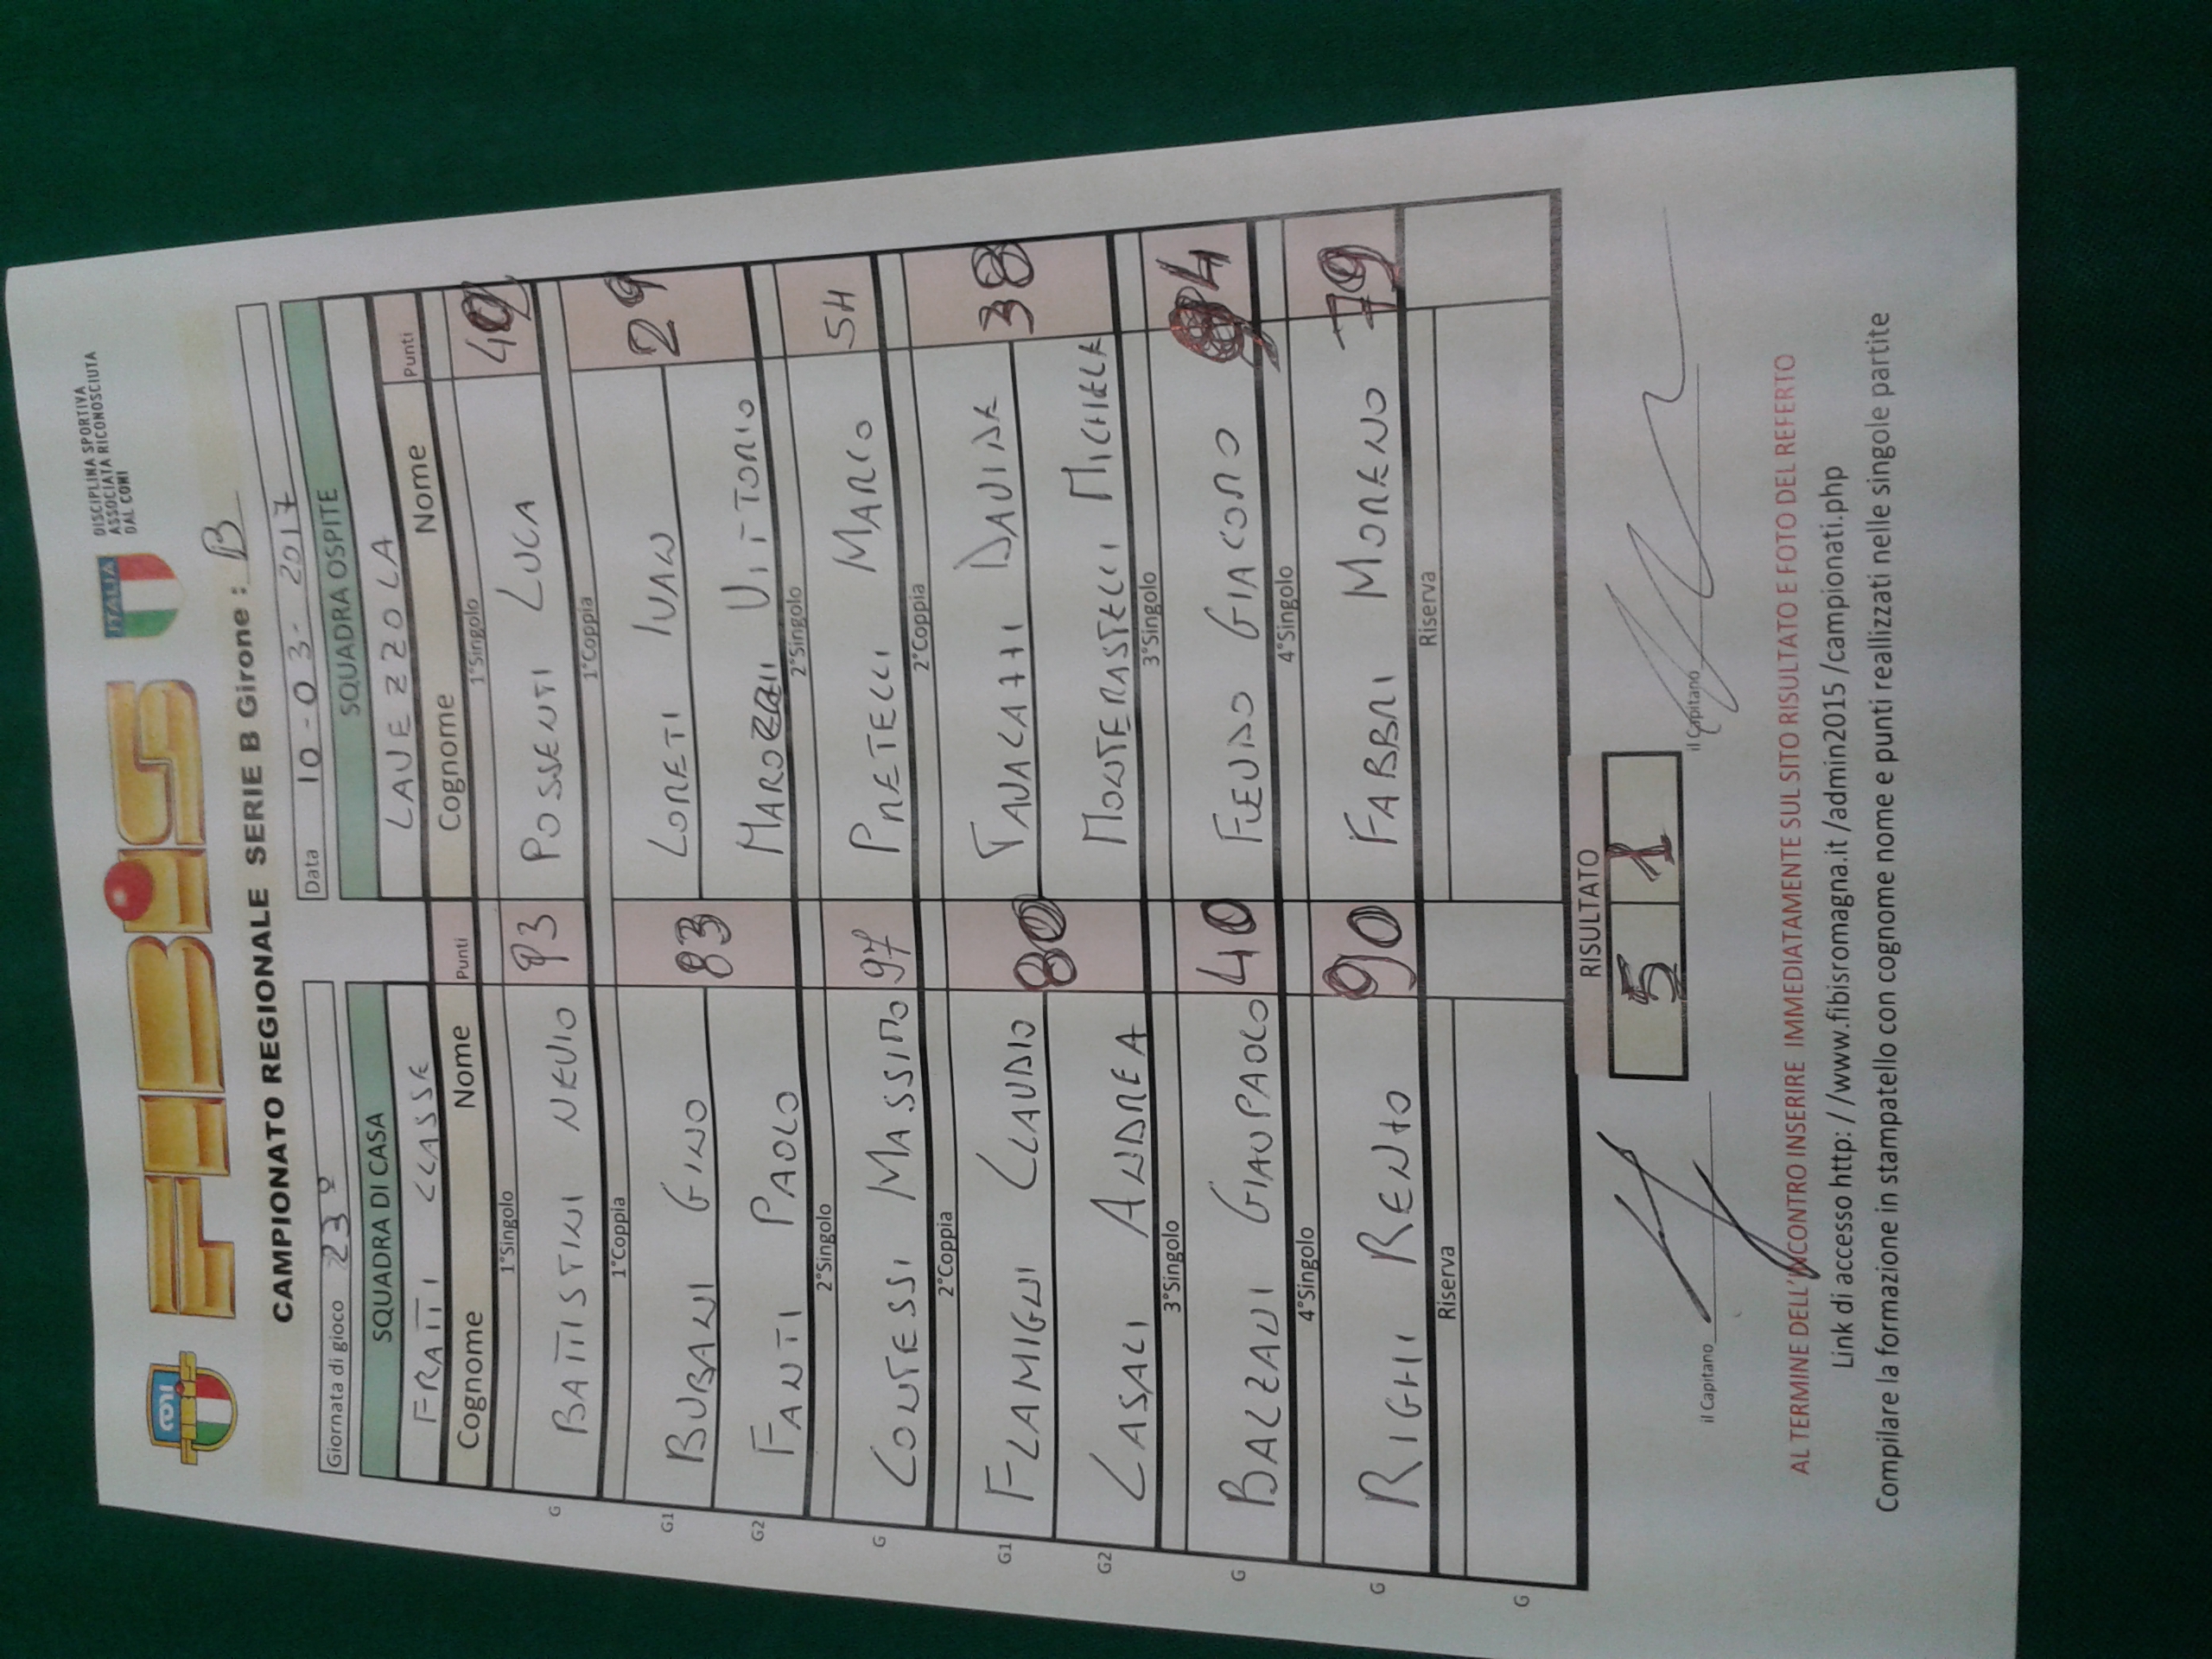 CONI
FIBIS
FIBIS
ITALIA
DISCIPLINA SPORTIVA
ASSOCIATA RICONOSCIUTA
DAL CONI
CAMPIONATO REGIONALE SERIE B Girone : B
Giornata di gioco 23º Data 10-03-2017
SQUADRA DI CASA SQUADRA OSPITE
FRATTI CLASSE LAVEZZOLA
Cognome Nome Punti Cognome Nome Punti
1°Singolo 1°Singolo
G BATTISTINI NEVIO 93 POSSENTI LUCA
1°Coppia 1°Coppia
G1 BUBANI GINO 83 LORETI IVAN 29
G2 FANTI PAOLO VITTORIO
2°Singolo 2°Singolo
G CONTESSI MASSIMO 97 PRETELLI MARCO 54
2°Coppia 2°Coppia
G1 FLAMIGNI CLAUDIO 80 DAVIDE 38
G2 CASALI ANDREA MONTERASTELLI MICHELE
3°Singolo 3°Singolo
G BALZANI GIANPAOLO 40 FEUDO GIACOMO
4°Singolo 4°Singolo
G RIGHI RENZO 90 FABBRI MORENO 79
Riserva Riserva
G
RISULTATO
5 1
il Capitano il Capitano
AL TERMINE DELL'INCONTRO INSERIRE IMMEDIATAMENTE SUL SITO RISULTATO E FOTO DEL REFERTO
Link di accesso http: / /www.fibisromagna.it /admin2015 /campionati.php
Compilare la formazione in stampatello con cognome nome e punti reallizzati nelle singole partite